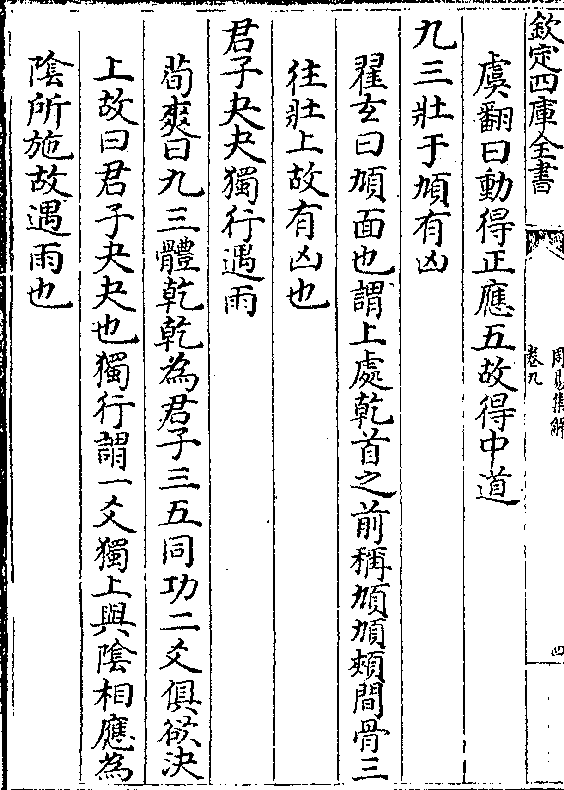 欽定四庫全書
周易集解
卷九
四
虞翻曰動得正應五故得中道
九三壯于頄有凶
翟玄曰頄面也謂上處乾首之前稱頄頄頰間骨三
往壯上故有凶也
君子夬夬獨行遇雨
荀爽曰九三體乾乾為君子三五同功二爻俱欲決
上故曰君子夬夬也獨行謂一爻獨上與陰相應為
陰所施故遇雨也